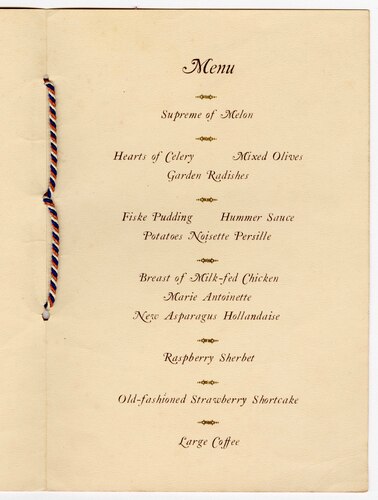 Menu
Supreme of Melon
Hearts of Celery Mixed Olives
Garden Radishes
Fiske Pudding Hummer Sauce
Potatoes Noisette Persille
Breast of Milk-fed Chicken
Marie Antoinette
New Asparagus Hollandaise
Raspberry Sherbet
Old-fashioned Strawberry Shortcake
Large Coffee